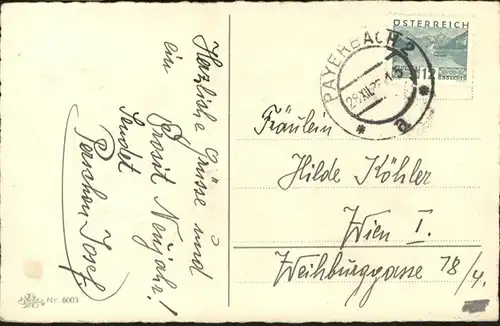 Herzliche Grüsse und
ein Prosit Neujahr!
Sendet
Josef
Nr. 6003
ÖSTERREICH
12
PAYERBACH 2
a
Fräulein
Hilde Köhler
Wien I.
Weihburggasse 18/4.